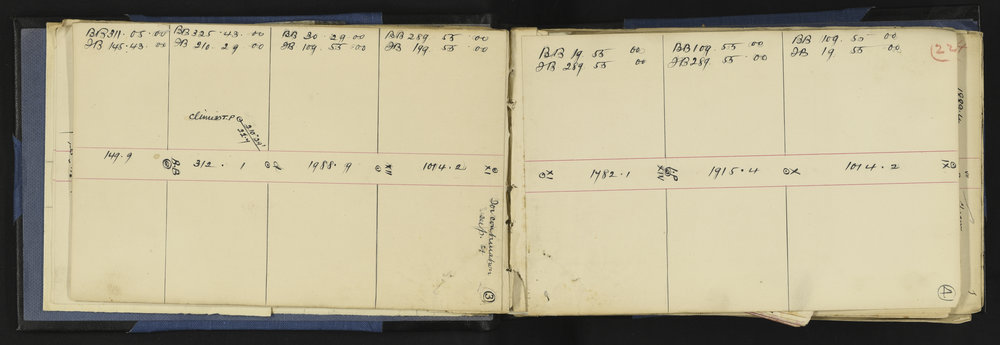 BB 211 . 05 . 00
FB 145 . 43 . 00
BB 325 . 43 . 00
FB 210 . 29 . 00
BB 30 . 29 . 00
FB 109 . 55 . 00
BB 289 55 00
FB 199 55 00
T.P
149.9
BB
312 . 1
1988 . 9
XII
1014 . 2
XI
For continuation
3
BB 19 . 55 00
FB 289 . 55 00
BB 109 . 55 . 00
FB 289 . 55 . 00
BB 109 . 55 . 00
FB 19 . 55 00
XI
1782 . 1
XIV
1915 . 4
X
1014 . 2
IX
4